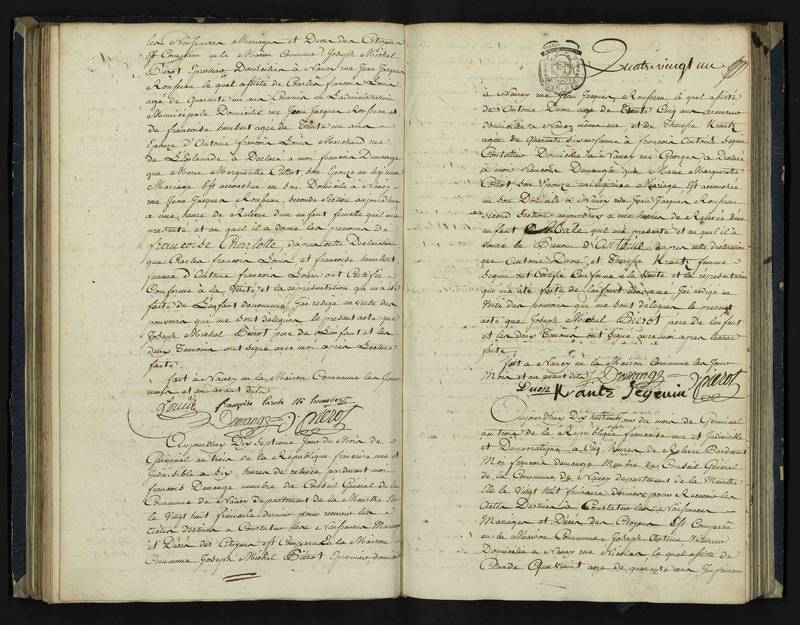 les Naissances Mariages et Décès des Citoyens
Est Comparu en la Maison Commune Joseph Michel
Pierot Domicilié à Nancy rue Jean Jacques
Rousseau lequel assisté de Charles françois Louis
agé de Quarante un ans Commis en L'administration
Municipale Domicilié rue Jean Jacques Rousseau et
de françoise humbert agée de Trente un ans
Epouse d'Antoine françois Louis Marchand rue
de L'Esplanade, à Déclaré a moi françois Demange
que Marie Marguerite Collot son Epouse en legitime
Mariage Est accouchée en son Domicile à Nancy
rue Jean Jacques Rousseau, seconde section aujourdhuy
a une heure de Relevée d'un enfant femelle quil ma
presenté et au quel il a donné les prenoms de
françoise Charlotte, d'apres cette Declaration
que Charles françois Louis et françoise humbert
femme d'Antoine françois Louis ont Certifiée
Conforme à la Vérité et la représentation qui m'a été
faite de L'enfant denommé, J'ai redigé en vertu des
pouvoirs qui me sont delegués le present acte que
Joseph Michel Pierot pere de L'enfant et les
deux Temoins ont signé avec moi apres Lecture
faite.
fait à Nancy en la Maison Commune les Jour
mois et an avant dits
Louis françoise humbert
Demange Pierot
Aujourdhuy Dix Septieme Jour du Mois de
Germinal an trois de la Republique française une et
Indivisible a Six heures de relevée pardevant moi
francois Demange membre du Conseil Général de la
Commune de Nancy departement de la Meurthe Elu
le Vingt huit frimaire dernier pour recevoir les
actes destinés a Constater les Naissances Mariages
et Décès des Citoyens est Comparu En la Maison
Commune Joseph Michel Pierot domicilié
Quatre vingt un
à Nancy rue Jean Jacques Rousseau le quel assisté
de Antoine Duon agé de Trente Cinq ans
domicilié à Nancy même rue, et de Therese Krantz
agée de quarante six ans femme à françois Antoine Seguin
Domicilié à Nancy rue Georges a Declaré
à moi françois Demange que Marie Marguerite
Collot son Epouse en legitime Mariage Est accouchée
en son Domicile à Nancy rue Jean Jacques Rousseau
Second Section aujourdhuy a une heure de Relevée d'un
enfant Male quil ma presenté et au quel il a
donné le Prenom d'Antoine d'apres cette declaration
que Antoine Duon et Therese Krantz femme
Seguin ont Certifié Conforme à la Vérité et la représentation
qui m'a été faite de l'enfant denommé J'ai redigé en
Vertu des pouvoirs qui me sont delegués le present
acte que Joseph Michel Pierot pere de l'enfant
et les deux Temoins ont signé avec moi apres lecture
faite
fait à Nancy en la Maison Commune les Jour
Mois et an avant dits Demange Pierot
Duon Krantz Segenin
Aujourdhuy Dix huitieme Jour du mois de Germinal
an trois de la Republique française une et Indivisible
et Democratique a Cinq heures de Relevée Pardevant
Moi françois demange Membre du Conseil Général
de la Commune de Nancy departement de la Meurthe
Elu le Vingt huit frimaire dernier pour Recevoir les
actes Destinés a Constater les Naissances
Mariages et Décès des Citoyens Est Comparu
en la Maison Commune Joseph Antoine
Domicilié a Nancy rue Nicolas le quel assisté de
Claude agé de quarante ans,